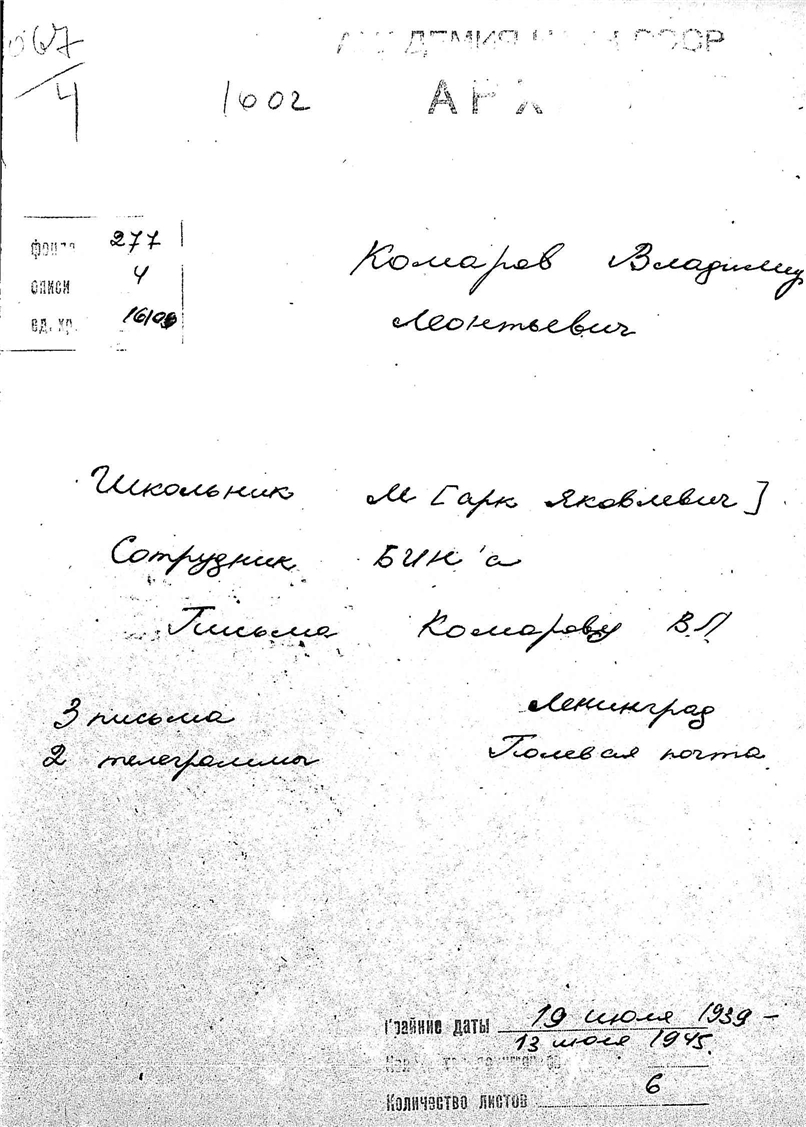 067
4
1602
АКАДЕМИЯ НАУК СССР
АРХ
фонд 277
описи 4
ед. хр.
Комаров Владимир
Леонтьевич
Школьник М[арк Яковлевич]
Сотрудник БИН'а
Письма Комарову В.Л.
3 письма
Ленинград
2 телеграммы
Полевая почта
Крайние даты 19 июля 1939 –
13 июля 1945.
Количество листов 6